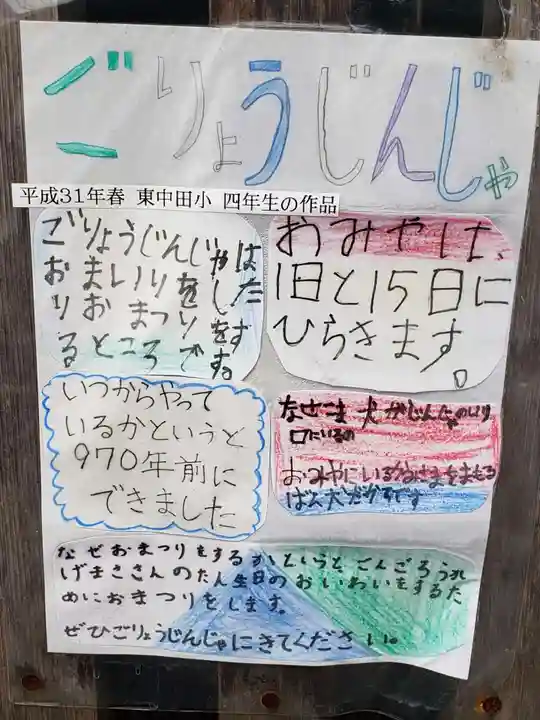 ごりょうじんじゃ
平成31年春 東中田小 四年生の作品
ごりょうじんじゃは
おまいりをした
りおまつりをす
るところです。
おみやは、
1日と15日に
ひらきます。
いつからやって
いるかというと
970年前に
できました
なぜこま犬がじんじゃのいり
口にいるの
おみやにいるかみさまをまもる
ばん犬だからです
なぜおまつりをするかというとごんごろうかれ
げまささんのたん生日のおいわいをするた
めにおまつりをします。
ぜひごりょうじんじゃにきてください。